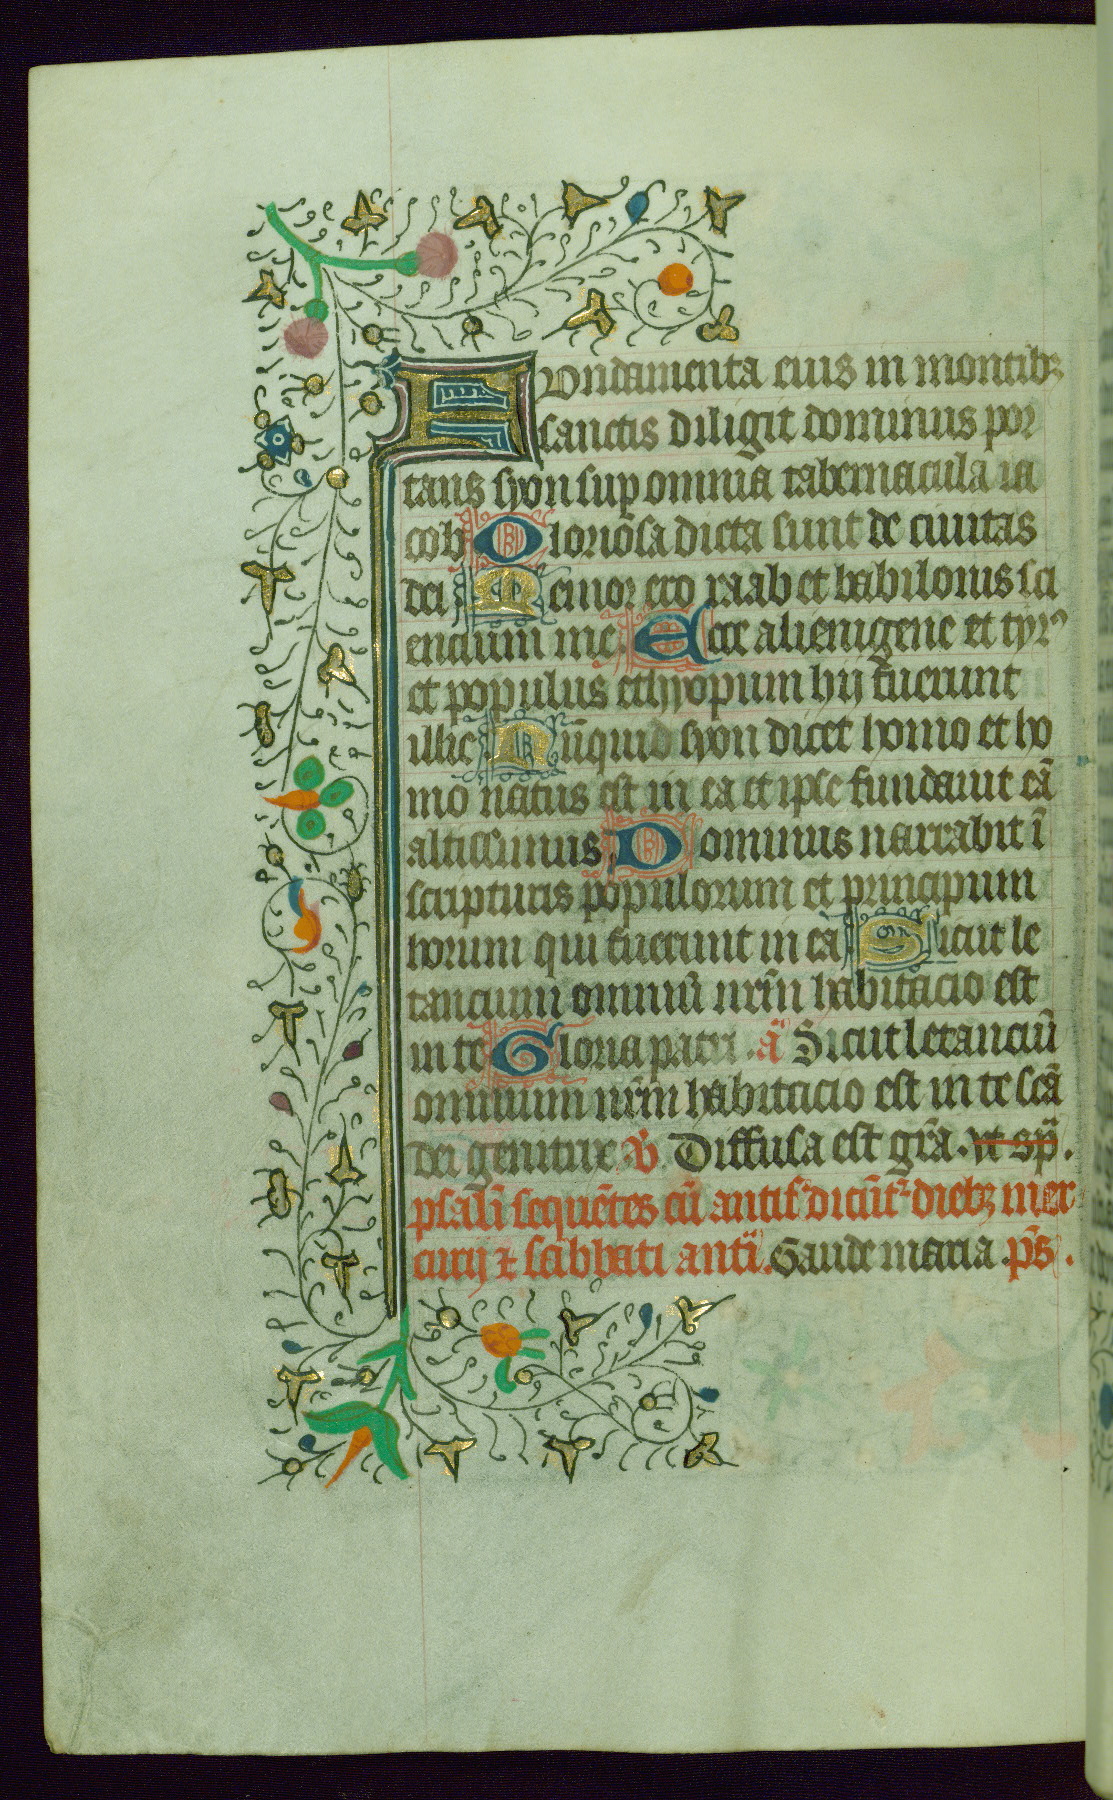 Fondamenta eius in montibꝫ
sanctis diligit dominus por
tans syon sup omnia tabernacula ia
cob Gloriosa dicta sunt de ciuitas
dei Memor ero raab et babilonis sci
encium me. Ecce alienigene et tyrꝰ
et populus ethyopum hij fuerunt
illic Nūquid syon dicet homo et ho
mo natus est in ea et ipse fundauit eā
altissimus Dominus narrabit ī
scripturis populorum et principum
horum qui fuerunt in ea Sicut le
tancium omniū nrm̄ habitacio est
in te Gloria patri .a Sicut letanciū
omnium nrm̄ habitacio est in te scā
dei genitrix. V Diffusa est gr̄a. vt sp̄.
psalm̄ sequētes cū antif dicūt diebꝫ mer
curij ⁊ sabbati anti. Gaude maria p̄s.